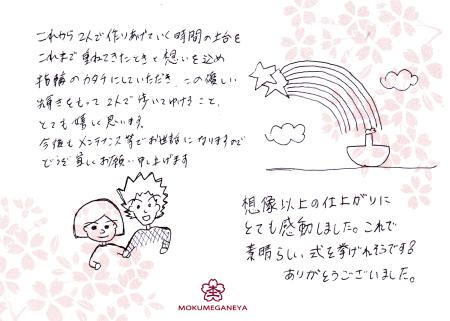 これから2人で作りあげていく時間の土台を
これまで重ねてきたときと想いを込め
指輪のカタチにしていただき、この優しい
輝きをもって2人で歩いてゆけること、
とても嬉しく思います。
今後もメンテナンス等でお世話になりますので
どうぞ宜しくお願い申し上げます
想像以上の仕上がりに
とても感動しました。これで
素晴らしい式を挙げれそうです!
ありがとうございました。
MOKUMEGANEYA